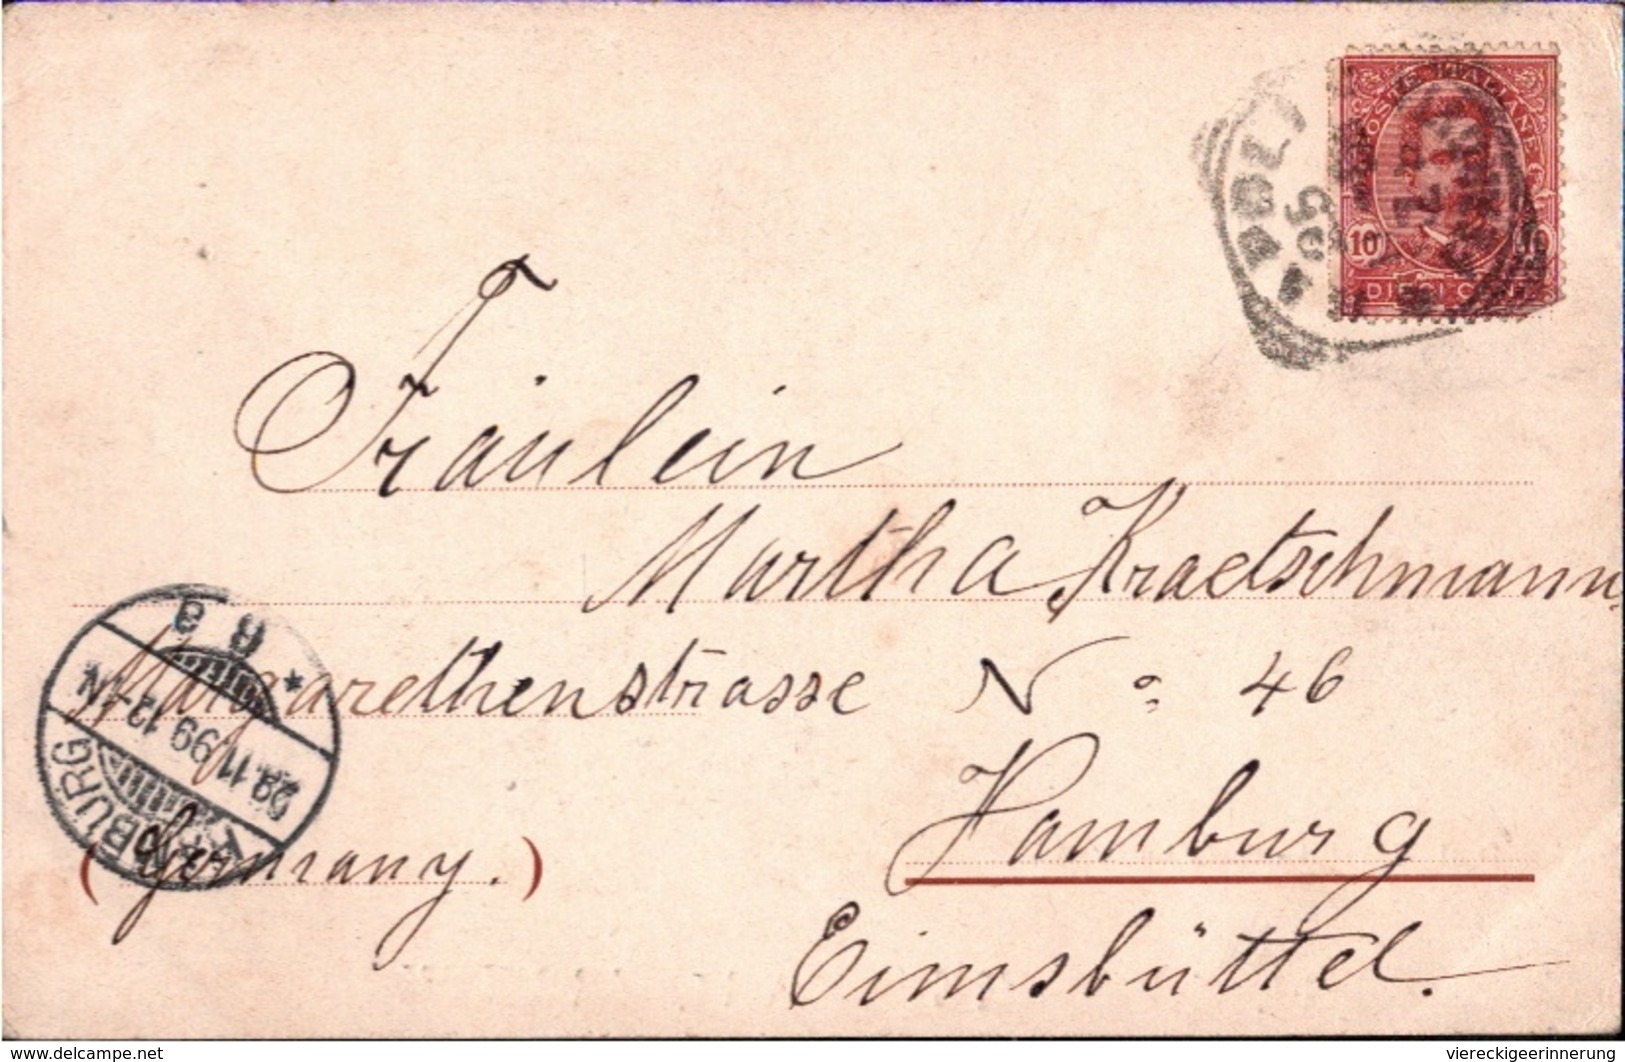 POSTE ITALIANE
10 10
DIECI CENT
Fräulein
Martha Kraetschmann,
Margarethenstrasse No 46
Hamburg
(Germany.)
Eimsbüttel.
HAMBURG
28.11.99 12-1N
* 6 a
www.delcampe.net
viereckigeerinnerung